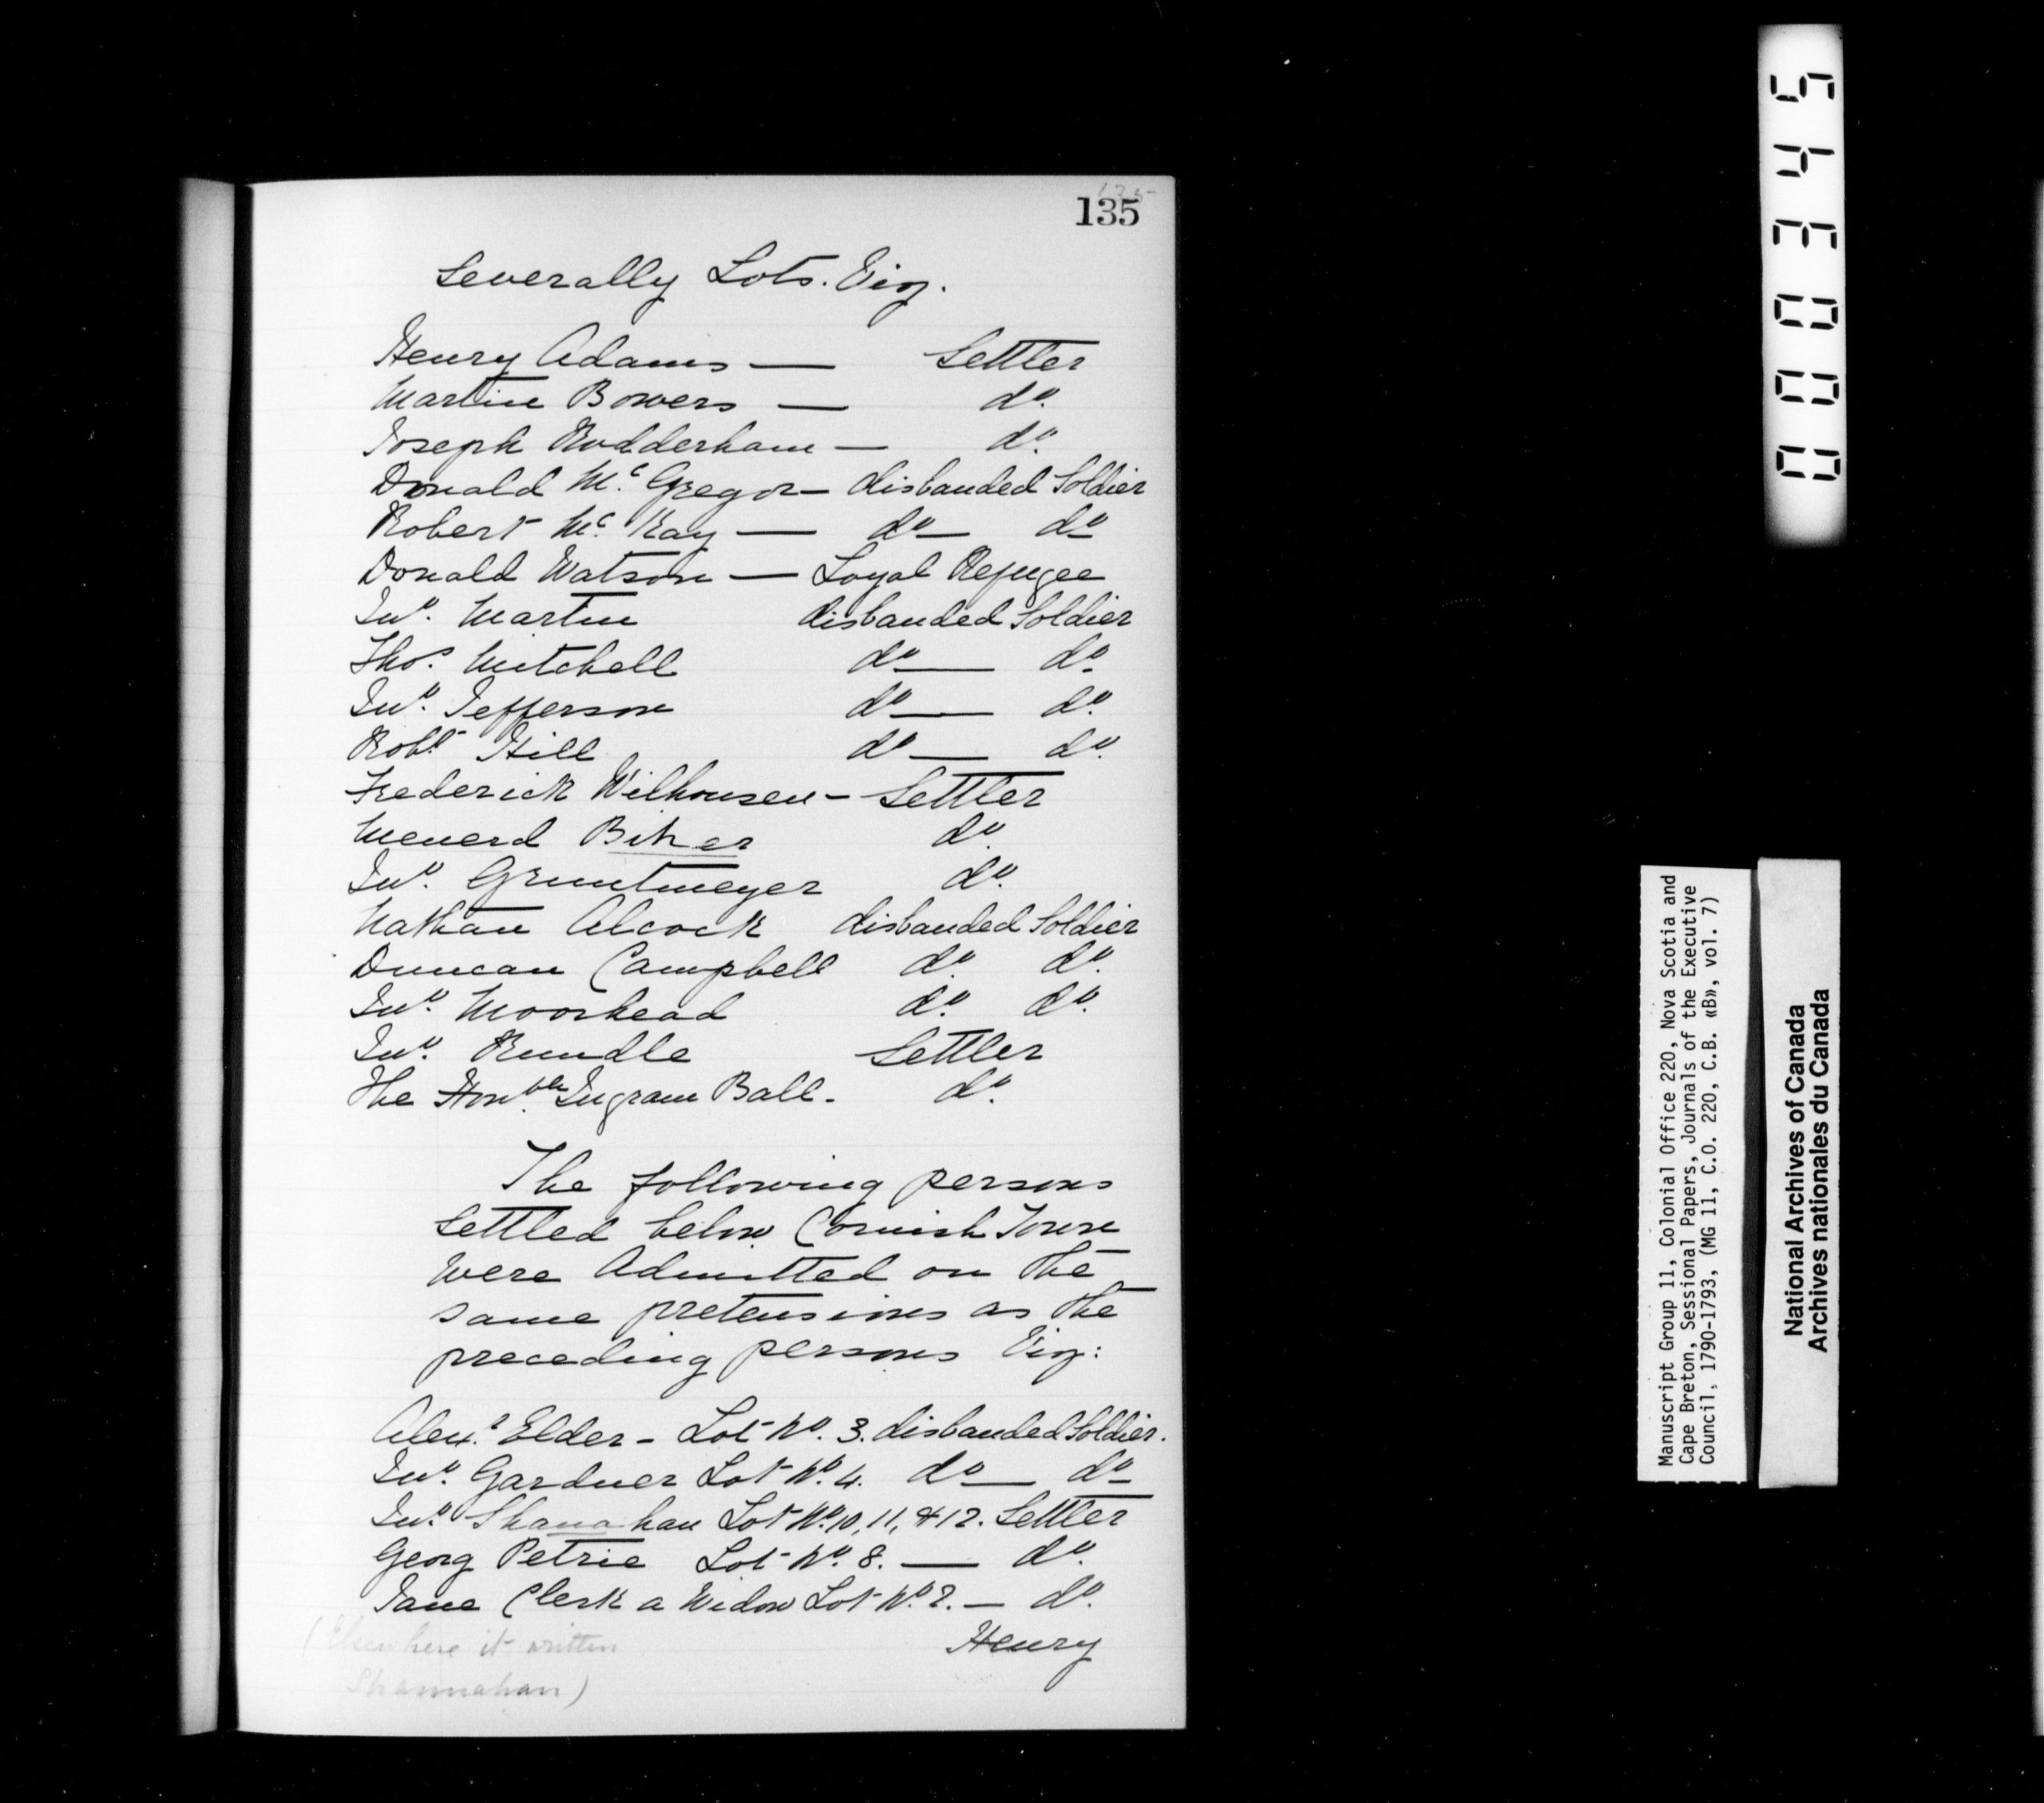 135
135
Severally Lots. Viz.
Henry Adams — Settler
Martin Bowers — do.
Joseph Rudderham — do.
Donald Mc. Gregor — disbanded Soldier
Robert Mc. Kay — do — do
Donald Watson — Loyal Refugee
Jno. Martin disbanded Soldier
Thos. Mitchell do — do
Jno. Jefferson do — do.
Robt. Hill do — do.
Frederick Wilhousen — Settler
Menerd Biker do.
Jno. Gruntmeyer do.
Nathan Alcock disbanded Soldier
Duncan Campbell do. do.
Jno. Moorhead do. do.
Jno. Rundle Settler
The Honble. Ingram Ball. do.
The following persons
Settled below Cornish Town
Were Admitted on the
same pretensions as the
preceding persons Viz:
Alexr. Elder - Lot No. 3. disbanded Soldier.
Jno. Gardner Lot No. 4. do — do
Jno. Shanahan Lot No. 10, 11, & 12. Settler
Georg Petrie Lot No. 8. — do.
Jane Clerk a Widow Lot No. 2. — do.
Henry
(Elsewhere it written
Shannahan)
000345
Manuscript Group 11, Colonial Office 220, Nova Scotia and
Cape Breton, Sessional Papers, Journals of the Executive
Council, 1790-1793, (MG 11, C.O. 220, C.B. «B», vol. 7)
National Archives of Canada
Archives nationales du Canada